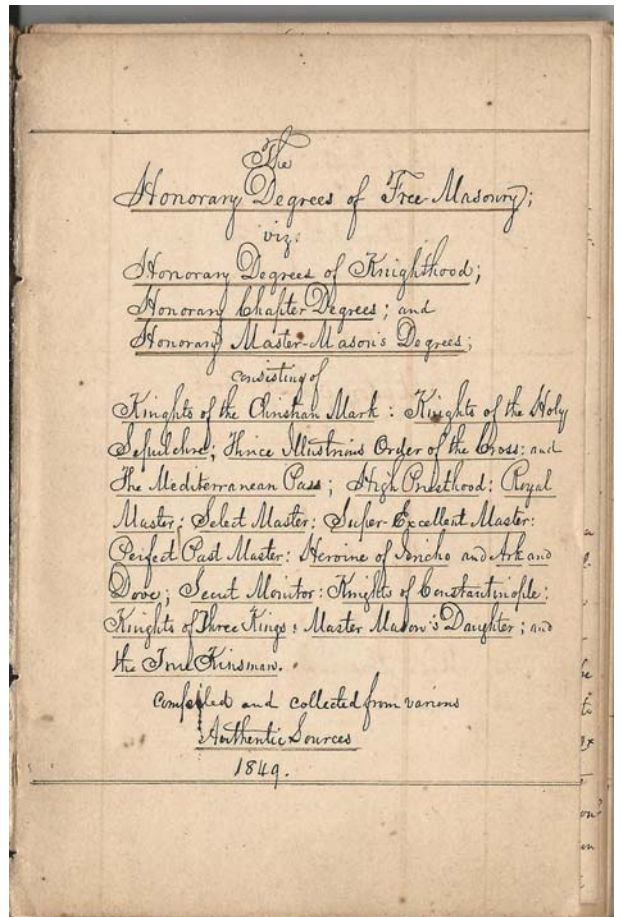 The
Honorary Degrees of Free Masonry;
viz.
Honorary Degrees of Knighthood;
Honorary Chapter Degrees; and
Honorary Master-Mason's Degrees;
consisting of
Knights of the Christian Mark: Knights of the Holy
Sepulchre; Thrice Illustrious Order of the Cross: and
The Mediterranean Pass; High Priesthood: Royal
Master: Select Master: Super-Excellent Master:
Perfect Past Master: Heroine of Jericho and Ark and
Dove; Secret Monitor: Knights of Constantinople:
Knights of Three Kings: Master Mason's Daughter; and
the True Kinsman.
Compiled and collected from various
Authentic Sources
1849.